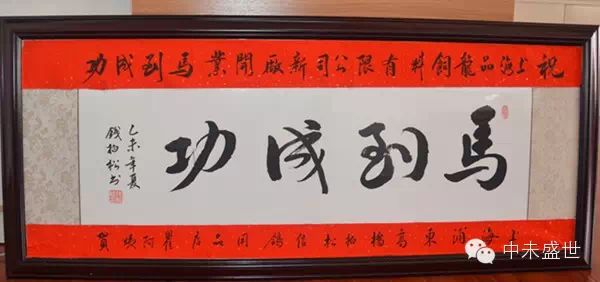 祝上海品龍飼料有限公司新廠開業馬到成功
馬到成功
乙未年夏
錢柏松书
上海浦東高橋柏松信鴿用品店瞿阿賀
中未盛世